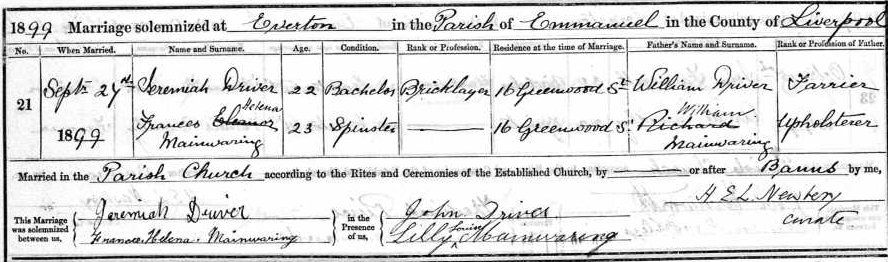 1899 Marriage solemnized at Everton in the Parish of Emmanuel in the County of Liverpool
No. When Married. Name and Surname. Age. Condition. Rank or Profession. Residence at the time of Marriage. Father's Name and Surname. Rank or Profession of Father.
21 Sept 27 Jeremiah Driver 22 Bachelor Bricklayer 16 Greenwood St William Driver Farrier
1899 Frances Eleanor Helena Mainwaring 23 Spinster 16 Greenwood St Richard William Mainwaring Upholsterer
Married in the Parish Church according to the Rites and Ceremonies of the Established Church, by or after Banns by me,
H E L Newbery
curate
This Marriage was solemnized between us, Jeremiah Driver in the Presence of us, John Driver
Frances Helena Mainwaring Lilly Louise Mainwaring